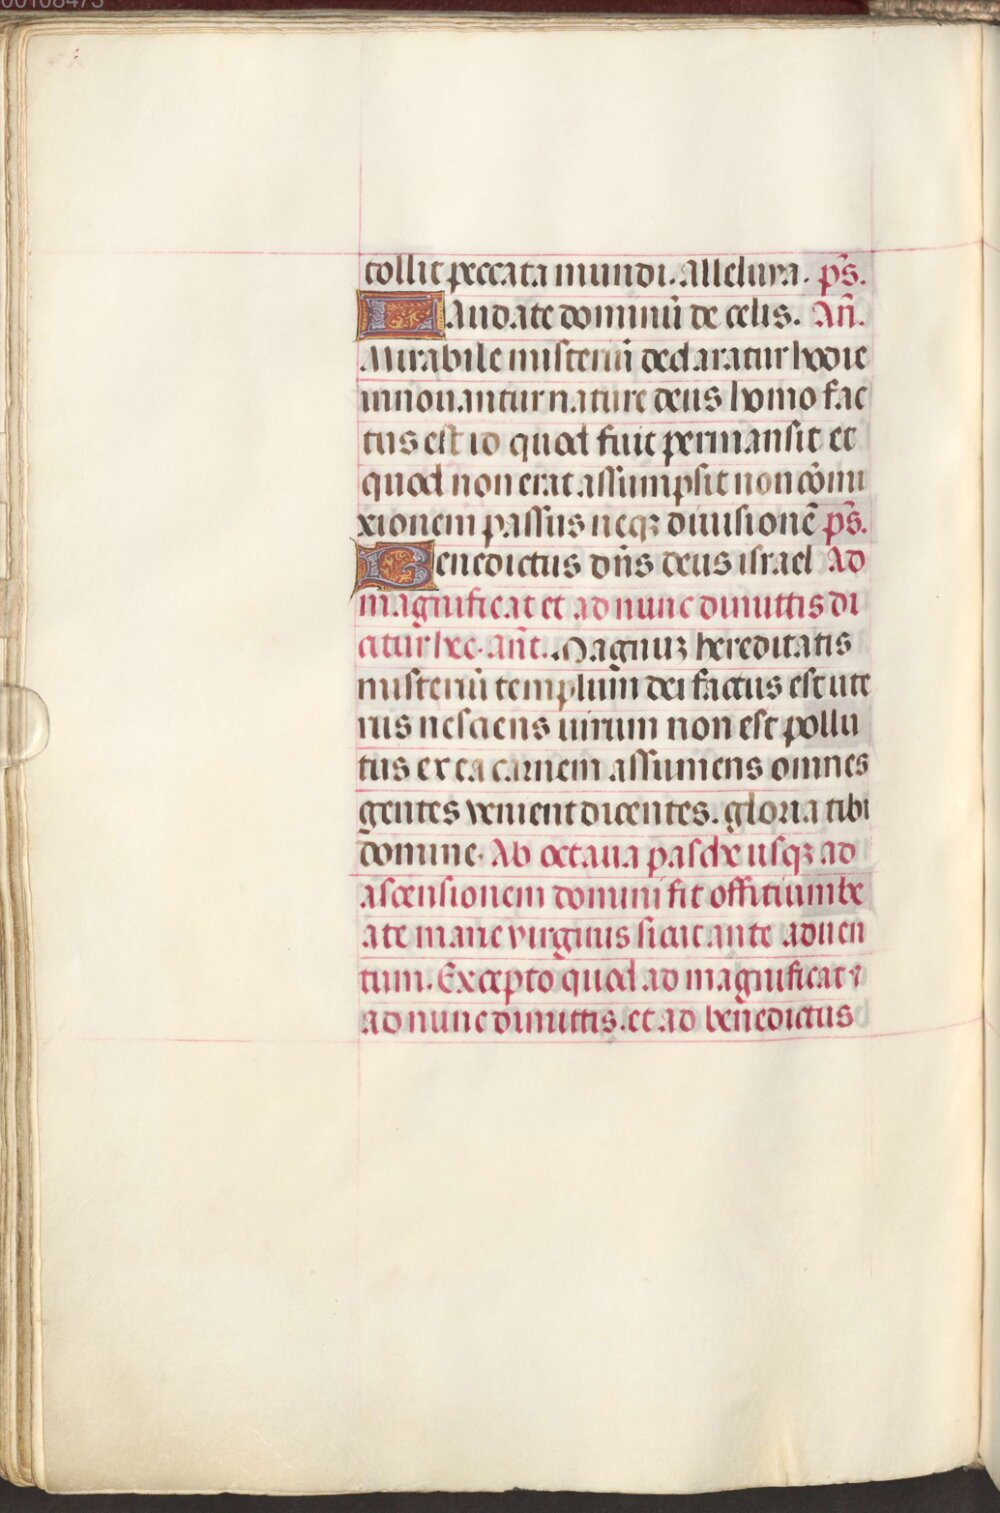 tollit peccata mundi. Alleluya. ps̃.
Laudate dominũ de celis. Añ.
Mirabile misteriũ declaratur hodie
innouantur nature deus homo fac
tus est id quod fuit permansit et
quod non erat assumpsit non cõmi
xionem passus neqʒ diuisionẽ ps̃.
Benedictus dñs deus israel Ad
magnificat et ad nunc dimittis di
citur hec. añt. Magnuʒ hereditatis
misteriũ templum dei factus est ute
rus nesciens uirum non est pollu
tus ex ea carnem assumens omnes
gentes venient dicentes. gloria tibi
domine. Ab octaua pasche usqʒ ad
ascensionem domini fit offitium be
ate marie virginis sicut ante aduen
tum. Excepto quod ad magnificat ⁊
ad nunc dimittis. et ad benedictus